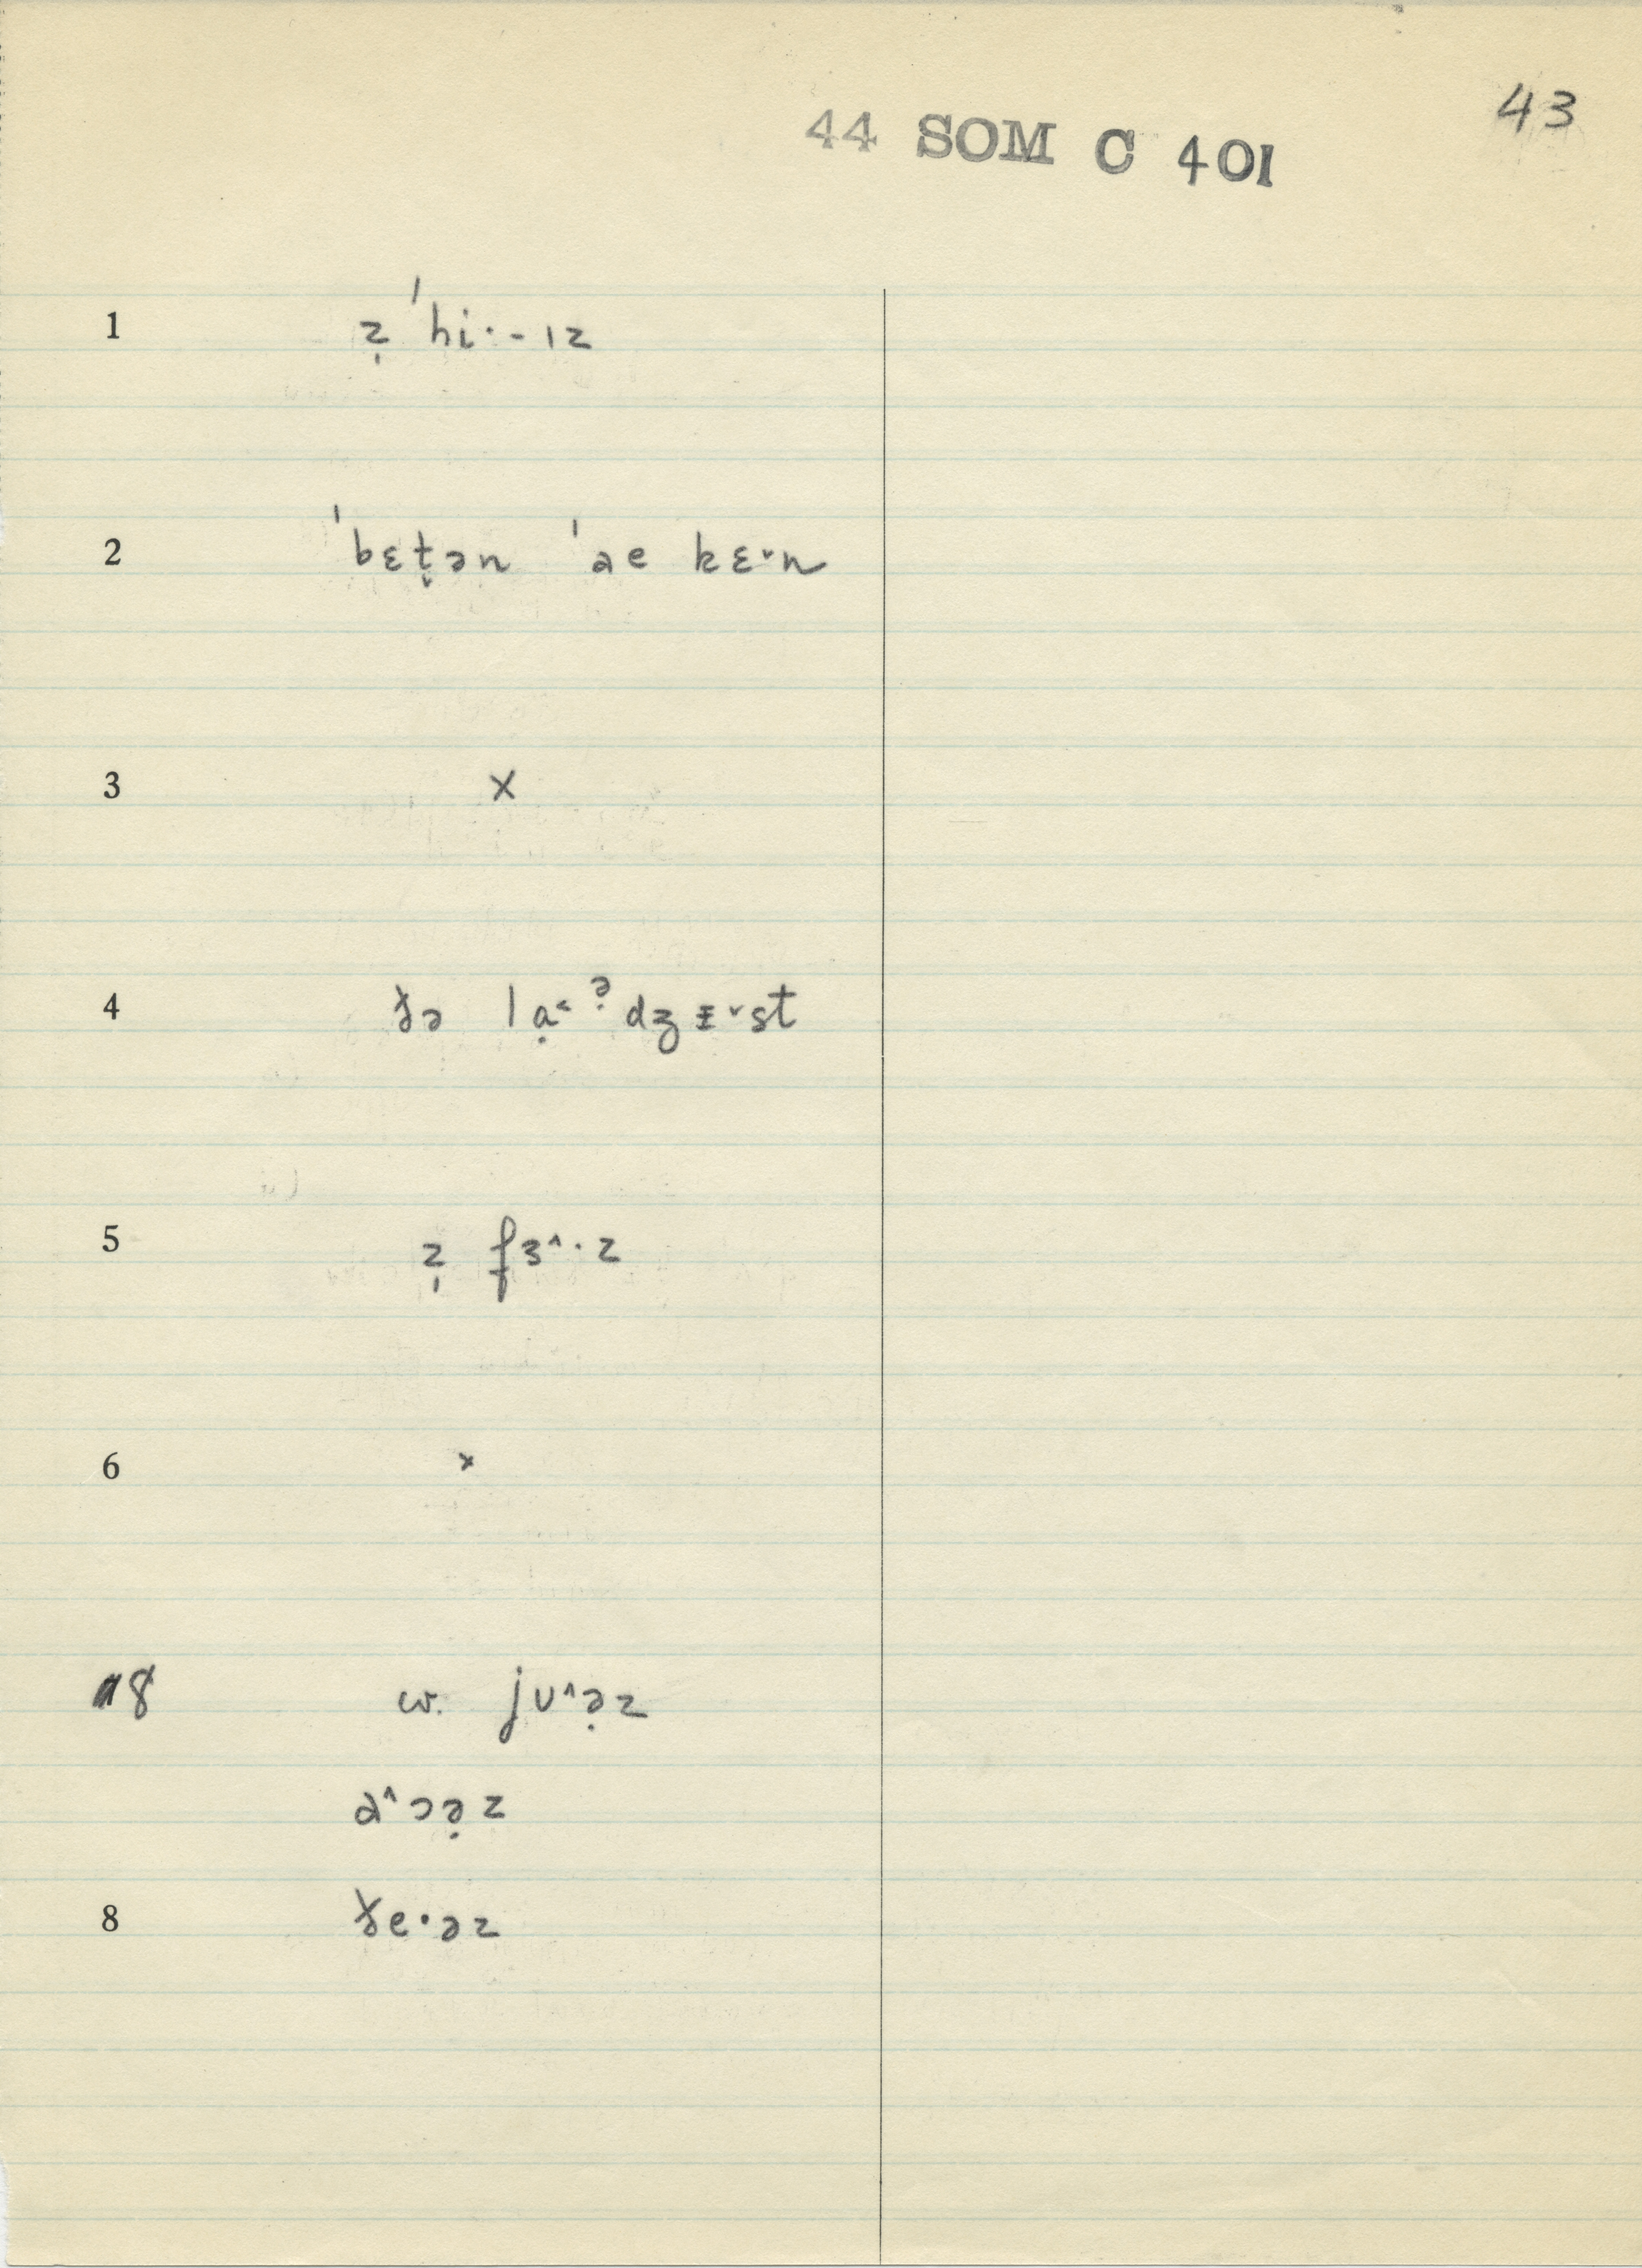 43
44 SOM C 401
1 z̩ ˈhi·-ɪz
2 ˈbɛt̬ən ˈae kɛ˅n
3 x
4 ðə lạ˂ə̣dʒɪ˅st
5 z̩ fɜ˄·z
6 x
8 w. jʊ˄ə̣z
ɑ˄ɔə̣z
8 ðe·əz